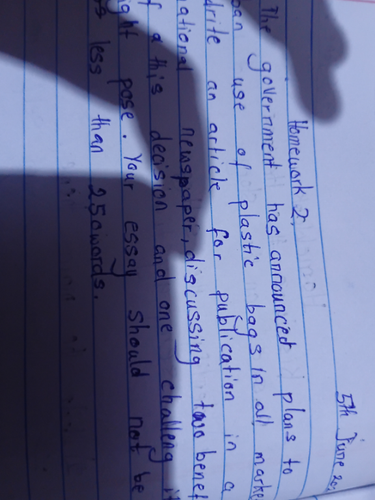 5th June 20
Homework 2.
The government has announced plans to
ban use of plastic bags in all marke
drite an article for publication in a
national newspaper, discussing two benef
f a this decision and one challeng i
ght pose. Your essay should not be
s less than 250words.